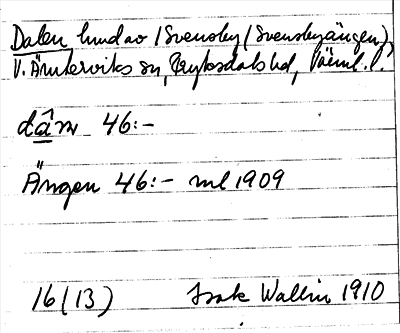 Dalen hmd av Svensby (Svensbyängen),
V. Ämterviks sn, Fryksdals hd, Värml. l.
dân 46:-
Ängen 46:- ml 1909
16 (13) Isak Wallin 1910